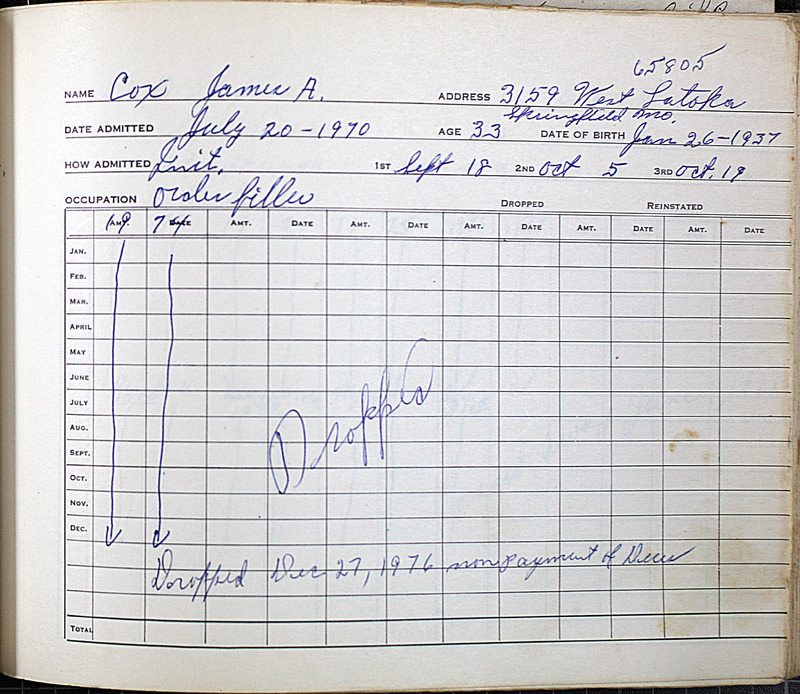 65805
NAME Cox James A. ADDRESS 3159 West Latoka
Springfield Mo.
DATE ADMITTED July 20-1970 AGE 33 DATE OF BIRTH Jan 26-1937
HOW ADMITTED Init. 1ST Sept 18 2ND Oct 5 3RD Oct. 19
OCCUPATION Order filler
DROPPED REINSTATED
AMT. DATE AMT. DATE AMT. DATE AMT. DATE AMT. DATE AMT. DATE
JAN.
FEB.
MAR.
APRIL
MAY
JUNE
JULY
AUG.
SEPT.
OCT.
NOV.
DEC.
Dropped
Dropped Dec 27, 1976 non payment of Dues
TOTAL